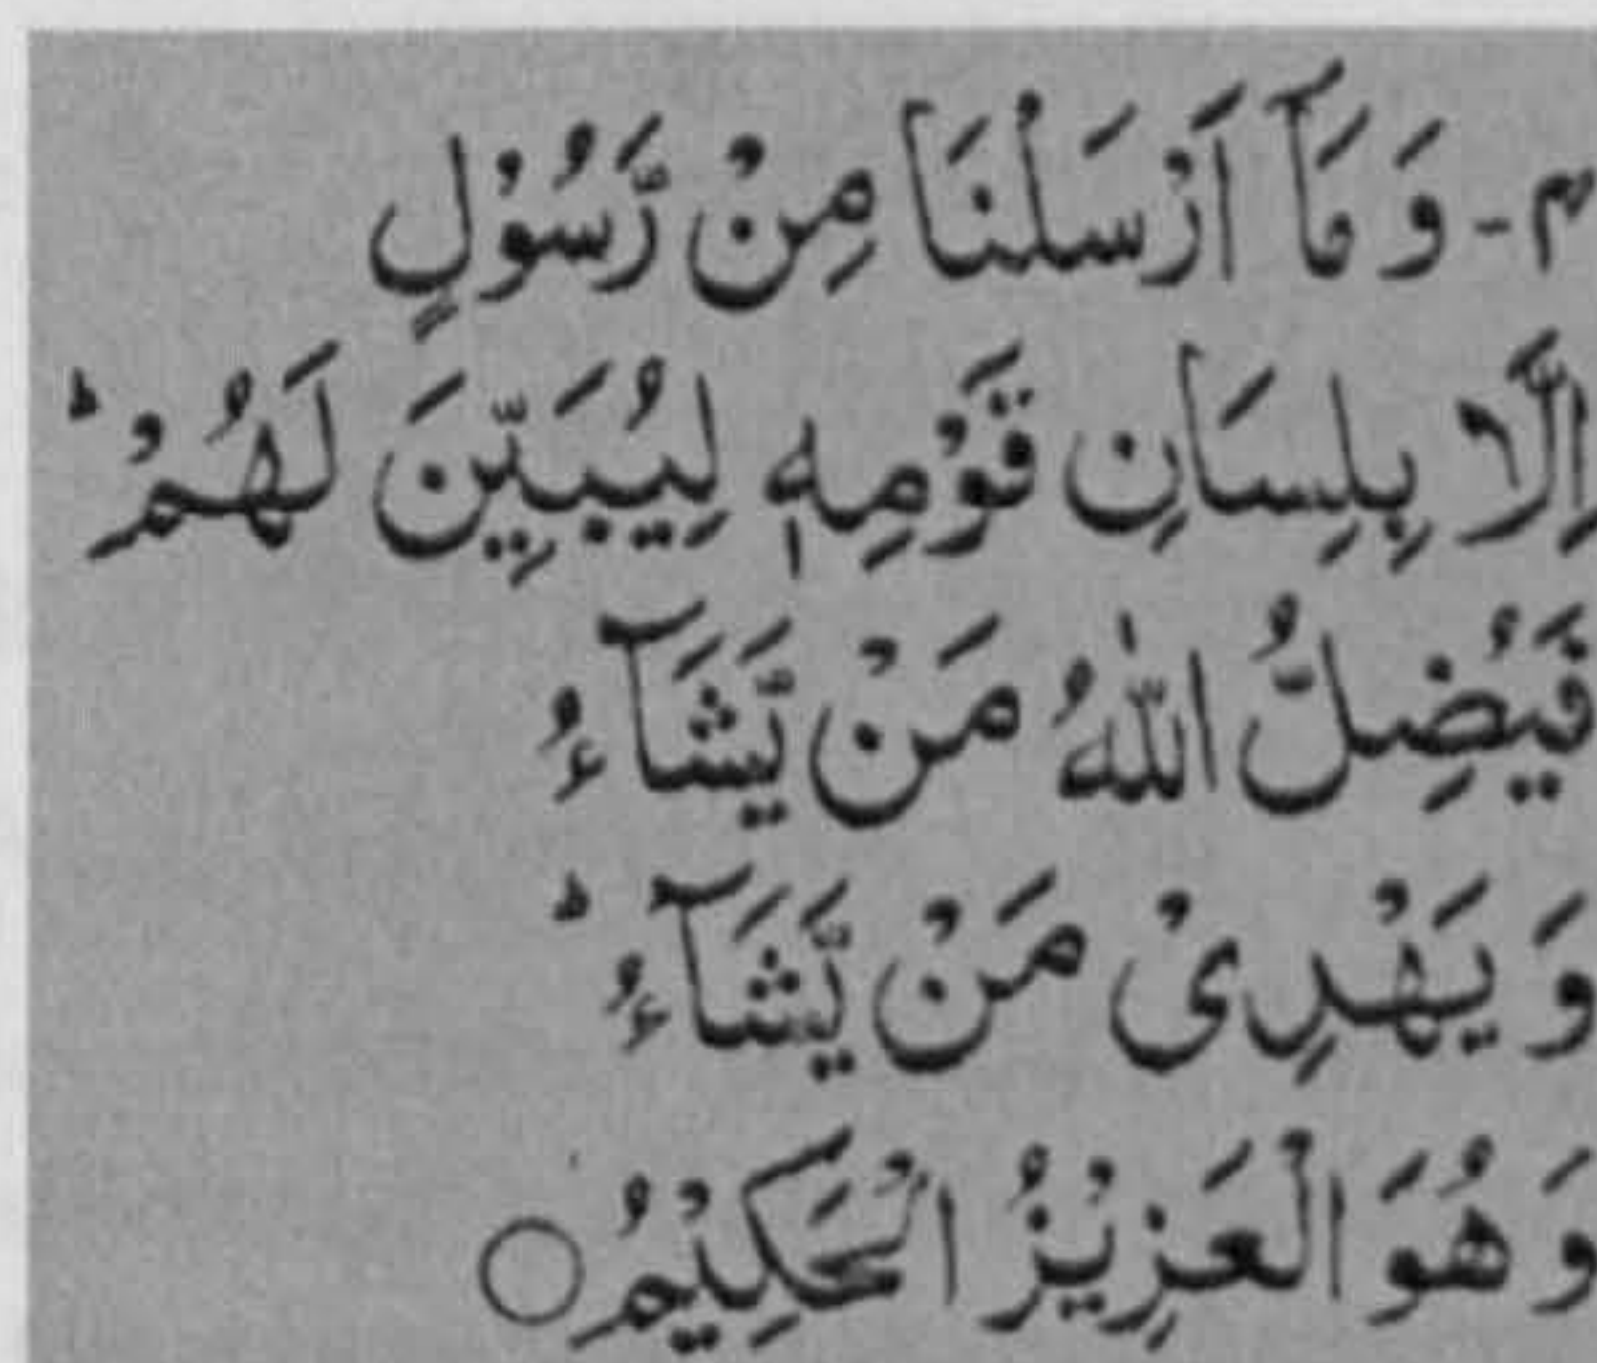 ۴- وَ مَاۤ اَرْسَلْنَا مِنْ رَّسُوْلٍ
اِلَّا بِلِسَانِ قَوْمِهٖ لِيُبَيِّنَ لَهُمْ ؕ
فَيُضِلُّ اللّٰهُ مَنْ يَّشَآءُ
وَ يَهْدِىْ مَنْ يَّشَآءُ ؕ
وَ هُوَ الْعَزِيْزُ الْحَكِيْمُ ○